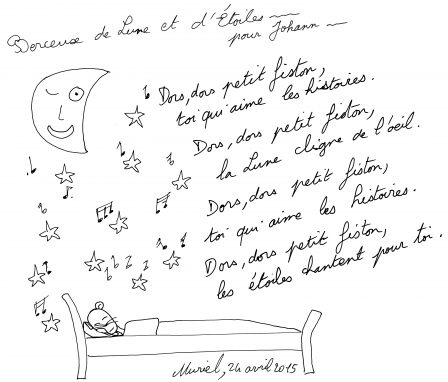 Berceuse de Lune et d'Étoiles
pour Johann
Dors, dors petit fiston,
toi qui aime les histoires.
Dors, dors petit fiston,
la Lune cligne de l'œil.
Dors, dors petit fiston,
toi qui aime les histoires.
Dors, dors petit fiston,
les étoiles chantent pour toi.
Muriel, 24 avril 2015